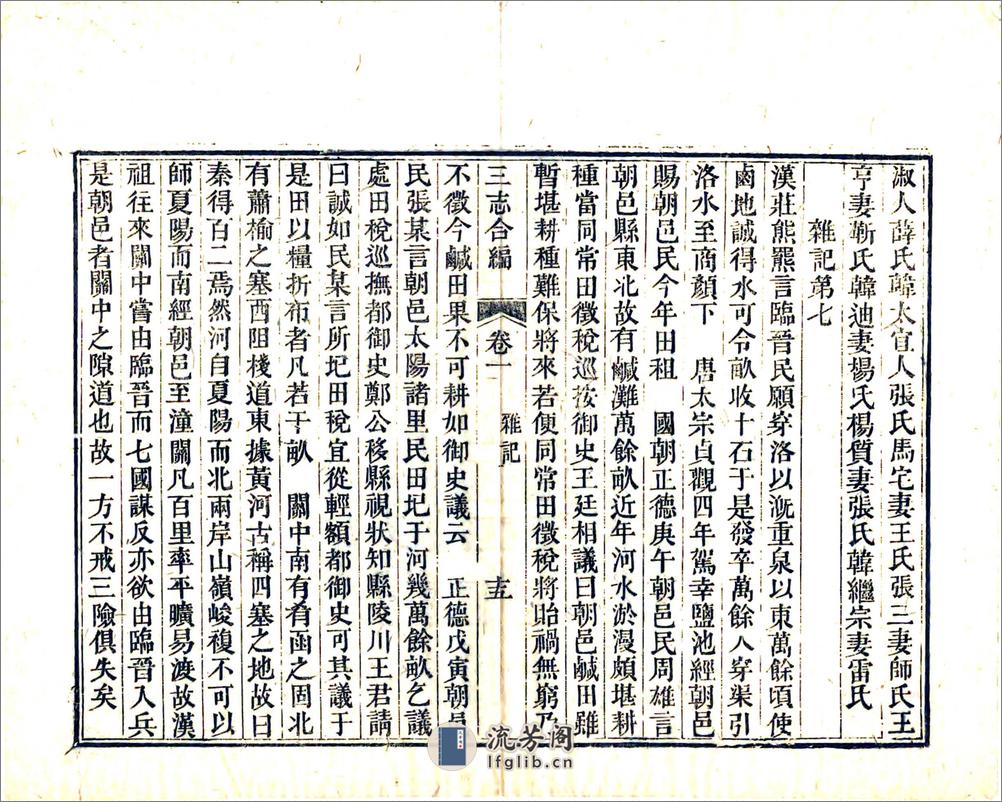 淑人薛氏韓太宜人張氏馬宅妻王氏張三妻師氏王
亨妻靳氏韓迪妻楊氏楊質妻張氏韓繼宗妻雷氏
雜記第七
漢莊熊羆言臨晉民願穿洛以溉重泉以東萬餘頃使
鹵地誠得水可令畝收十石于是發卒萬餘人穿渠引
洛水至商顏下 唐太宗貞觀四年駕幸鹽池經朝邑
賜朝邑民今年田租 國朝正德庚午朝邑民周雄言
朝邑縣東北故有鹹灘萬餘畝近年河水淤漫頗堪耕
種當同常田徵稅巡按御史王廷相議曰朝邑鹹田雖
暫堪耕種難保將來若便同常田徵稅將貽禍無窮乃
三志合編 卷一 雜記 十五
不徵今鹹田果不可耕如御史議云 正德戊寅朝邑
民張某言朝邑太陽諸里民田圮于河幾萬餘畝乞議
處田稅巡撫都御史鄭公移縣視狀知縣陵川王君請
曰誠如民某言所圮田稅宜從輕額都御史可其議于
是田以糧折布者凡若干畝 關中南有殽函之固北
有蕭榆之塞西阻棧道東據黃河古稱四塞之地故曰
秦得百二焉然河自夏陽而北兩岸山嶺峻複不可以
師夏陽而南經朝邑至潼關凡百里率平曠易渡故漢
祖往來關中嘗由臨晉而七國謀反亦欲由臨晉入兵
是朝邑者關中之隙道也故一方不戒三險俱失矣
流芳閣
lfglib.cn